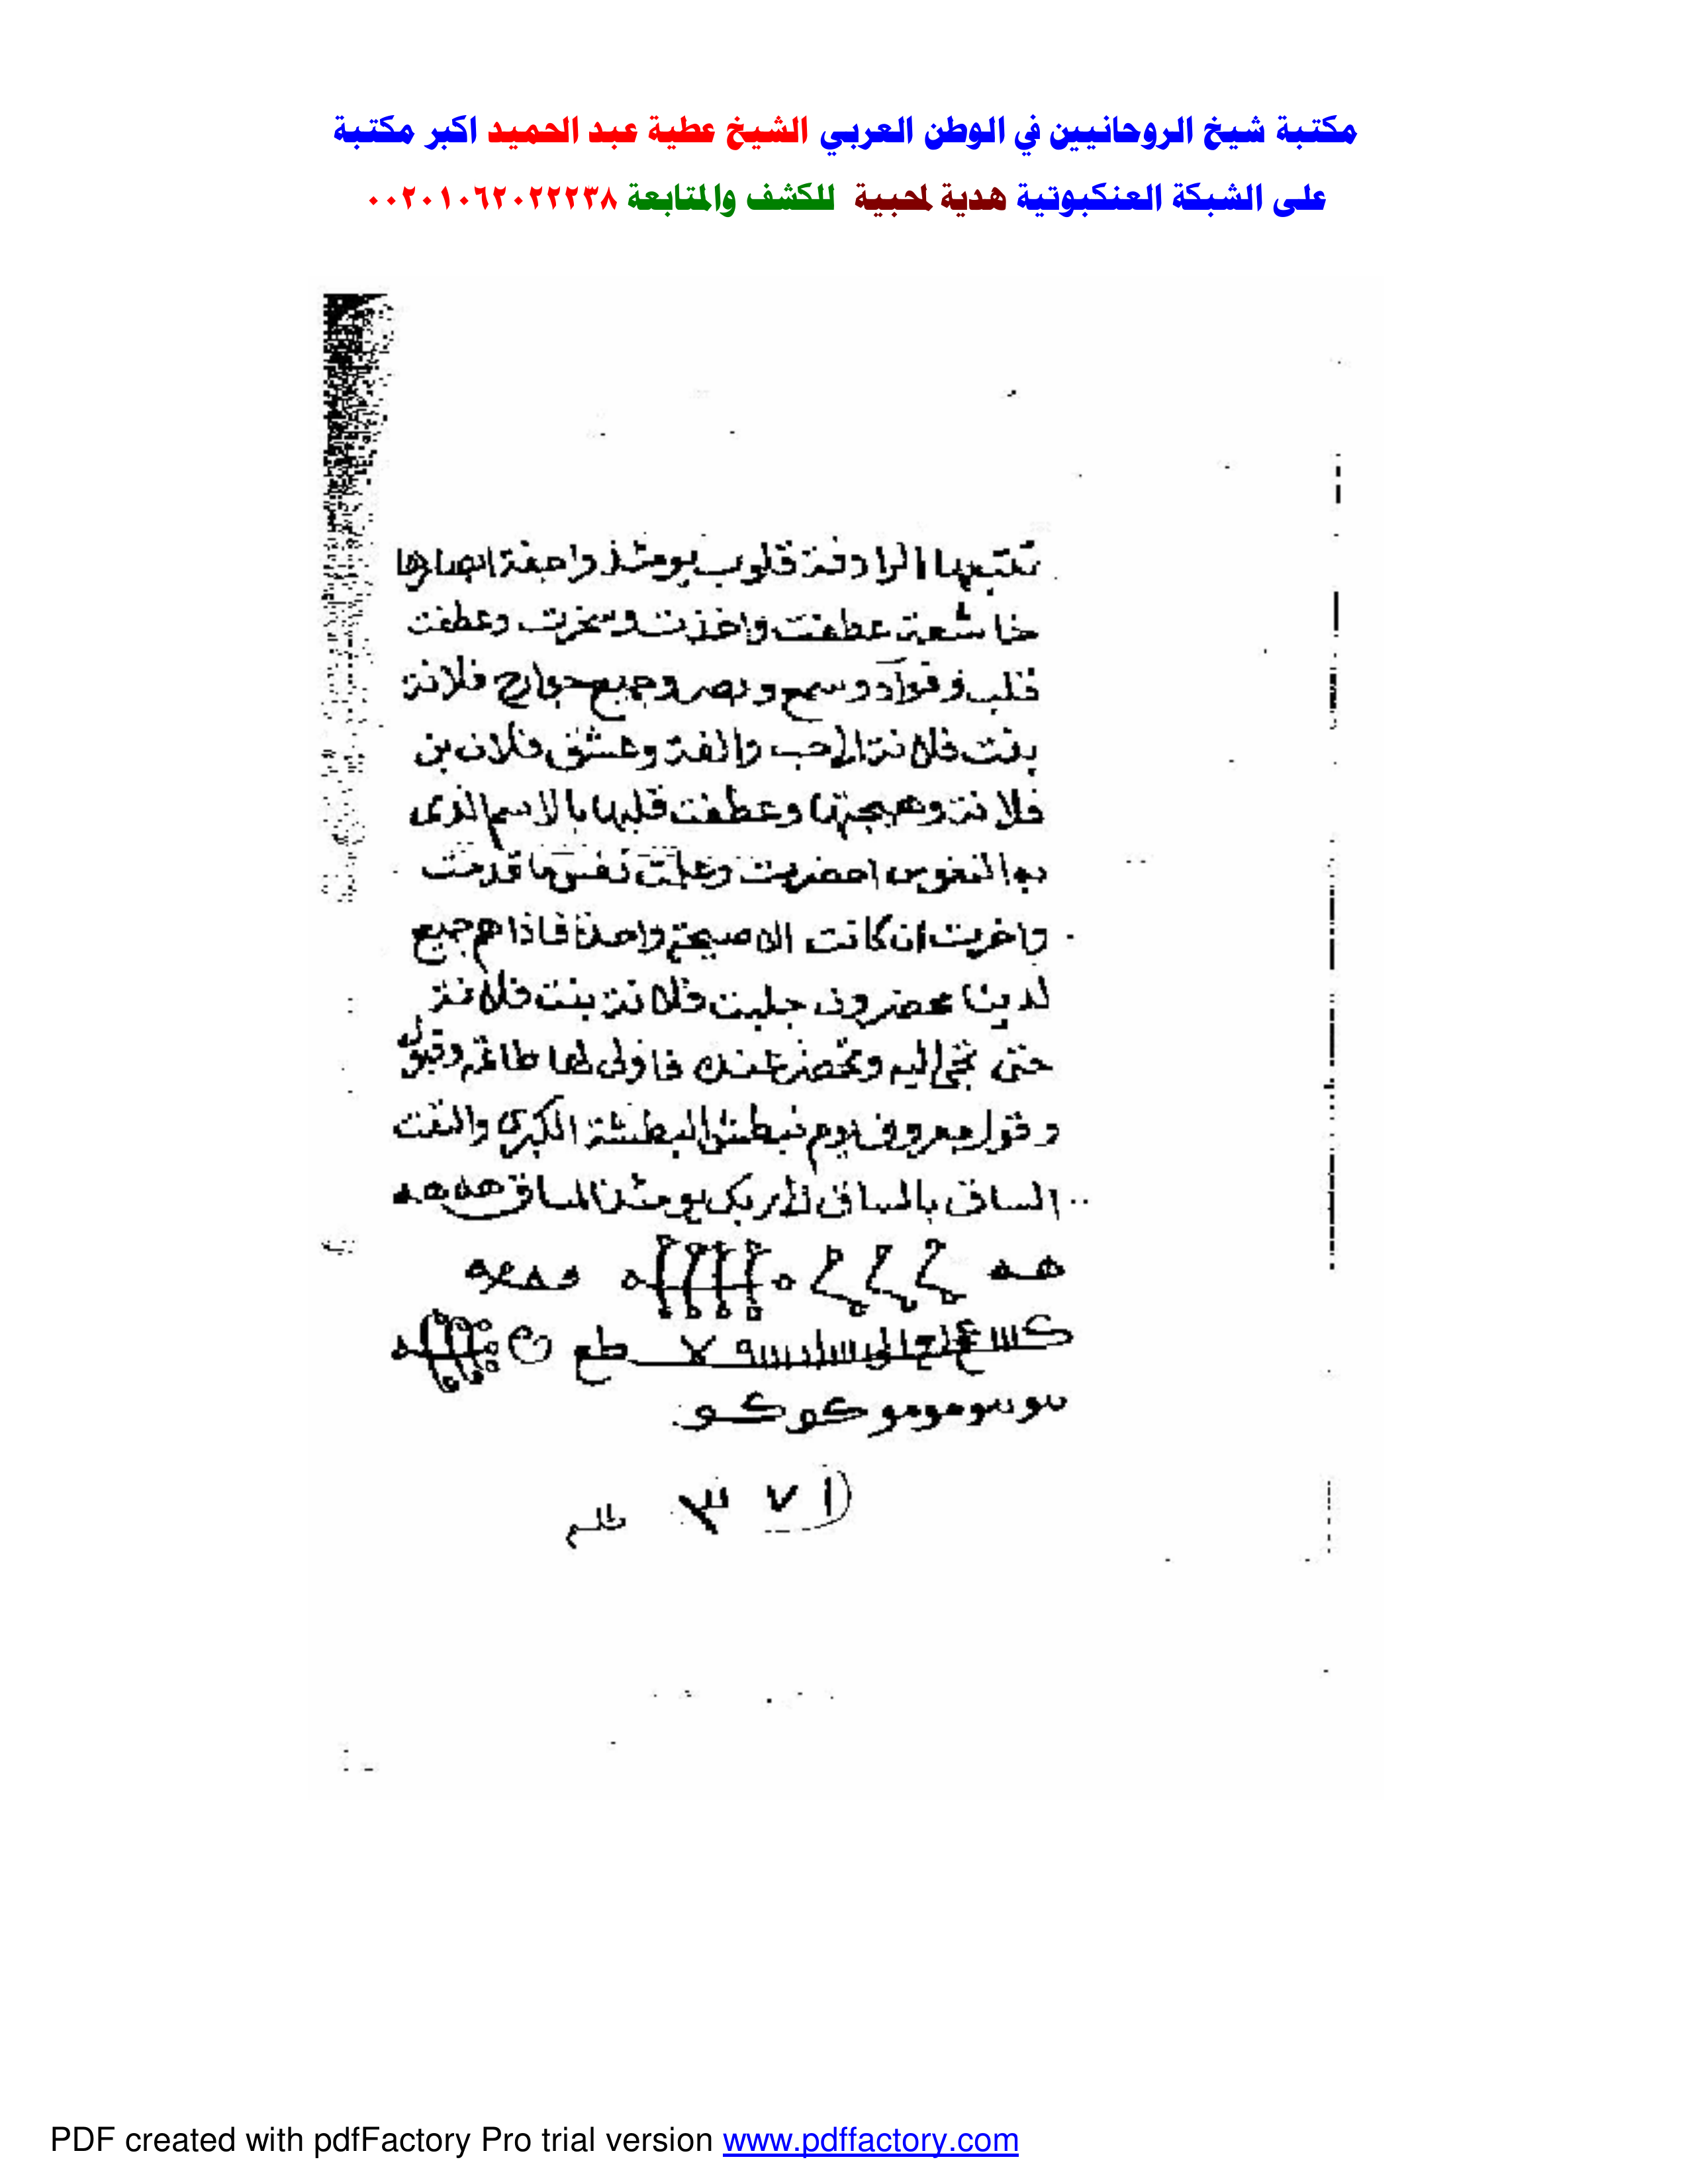 مكتبة شيخ الروحانيين في الوطن العربي الشيخ عطية عبد الحميد اكبر مكتبة
على الشبكة العنكبوتية هدية لمحبية للكشف والمتابعة ٠٠٢٠١٠٦٢٠٢٢٢٣٨
تتبعها الرادفة قلوب يومئذ واجفة ابصارها
خاشعة عطفت واخذت وسخرت وعطفت
قلب وفواد وسمع وبصر وجميع جوارح فلانة
بنت فلانة الى حب والفة وعشق فلان بن
فلانة وهيجتها وعطفت قلبها بالاسم الذى
به النفوس احضرت وعلمت نفس ما قدمت
واخرت ان كانت الا صيحة واحدة فاذا هم جميع
لدينا محضرون جلبت فلانة بنت فلانة
حتى تجى اليه وتحضر عنده فاولى لها طاعة وقول
وقول معروف يوم نبطش البطشة الكبرى والتفت
الساق بالساق الى ربك يومئذ المساق هه هه
هه
طع
سو سو مو مو كو كو
PDF created with pdfFactory Pro trial version www.pdffactory.com